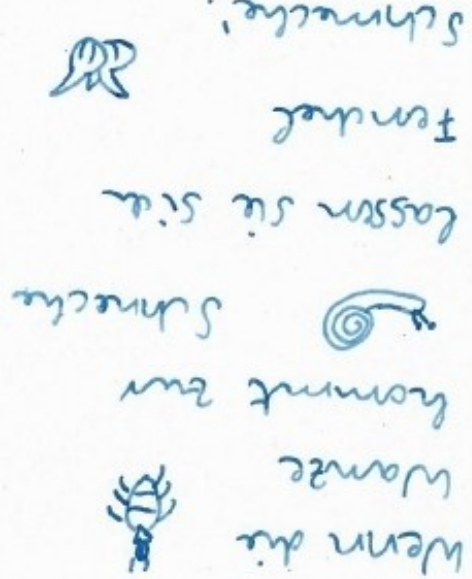 Wenn die
Wanze
kommt zur
Schnecke
lassen sie sich
Fenchel
Schmecke!